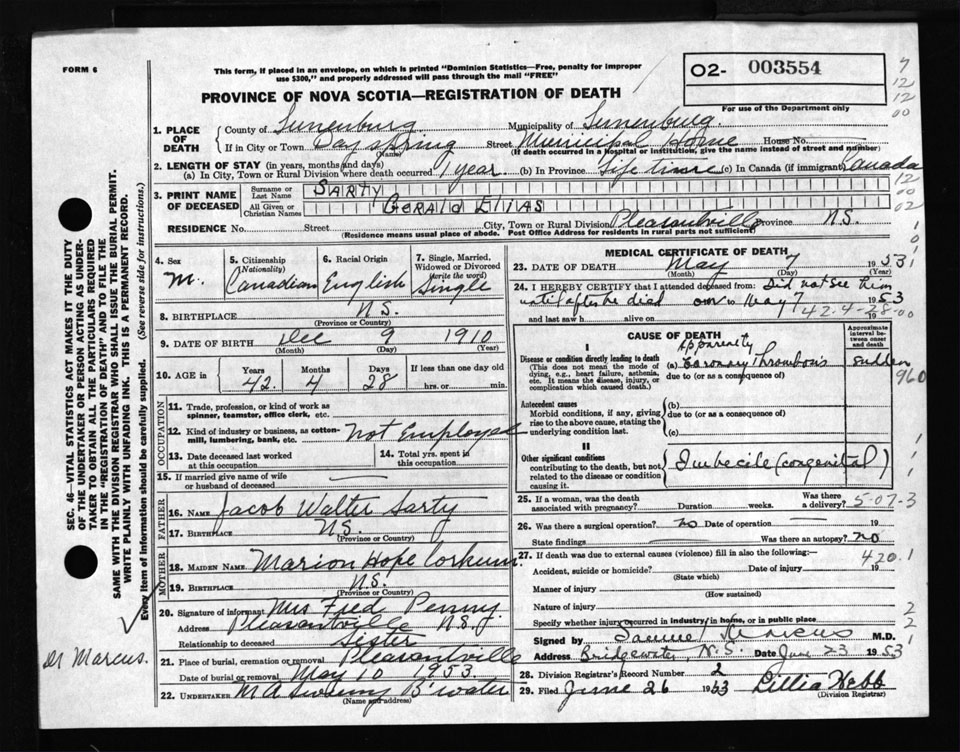 FORM 6
This form, if placed in an envelope, on which is printed "Dominion Statistics—Free, penalty for improper
use $300," and properly addressed will pass through the mail "FREE"
O2- 003554
For use of the Department only
7
12
12
00
PROVINCE OF NOVA SCOTIA—REGISTRATION OF DEATH
1. PLACE OF DEATH County of Lunenburg Municipality of Lunenburg.
If in City or Town Dayspring Street Municipal Home House No.
(Name) (If death occurred in a Hospital or Institution, give the name instead of street and number)
2. LENGTH OF STAY (in years, months and days)
(a) In City, Town or Rural Division where death occurred 1 year (b) In Province Life time (c) In Canada (if immigrant) Canada
12
00
02
3. PRINT NAME OF DECEASED Surname or Last Name SARTY
All Given or Christian Names Gerald Elias
RESIDENCE No. Street City, Town or Rural Division Pleasantville Province N.S.
(Residence means usual place of abode. Post Office Address for residents in rural parts not sufficient)
4. Sex M. 5. Citizenship (Nationality) Canadian 6. Racial Origin English 7. Single, Married, Widowed or Divorced (write the word) Single
8. BIRTHPLACE N.S.
(Province or Country)
9. DATE OF BIRTH Dec 9 1910
(Month) (Day) (Year)
10. AGE in Years 42. Months 4 Days 28 If less than one day old
hrs. or min.
OCCUPATION
11. Trade, profession, or kind of work as
spinner, teamster, office clerk, etc.
12. Kind of industry or business, as cotton-
mill, lumbering, bank, etc. Not Employed
13. Date deceased last worked
at this occupation
14. Total yrs. spent in
this occupation
15. If married give name of wife
or husband of deceased
FATHER
16. NAME Jacob Walter Sarty
17. BIRTHPLACE N.S.
(Province or Country)
MOTHER
18. MAIDEN NAME Marion Hope Corkum
19. BIRTHPLACE N.S.
(Province or Country)
20. Signature of informant Mrs Fred Penny
Address Pleasantville N.S.
Relationship to deceased Sister
21. Place of burial, cremation or removal Pleasantville
Date of burial or removal May 10 1953
22. UNDERTAKER M A Sweeny B'water
(Name and address)
MEDICAL CERTIFICATE OF DEATH
23. DATE OF DEATH May 7 1953
(Month) (Day) (Year)
24. I HEREBY CERTIFY that I attended deceased from: Did not see him
until after he died on May 7 1953
and last saw h alive on 19
42.4-28-00
CAUSE OF DEATH
Approximate interval between onset and death
I
Disease or condition directly leading to death
(This does not mean the mode of
dying, e.g., heart failure, asthenia,
etc. It means the disease, injury, or
complication which caused death.)
Apparently
(a) Coronary Thrombosis sudden
due to (or as a consequence of)
960
Antecedent causes
Morbid conditions, if any, giving
rise to the above cause, stating the
underlying condition last.
(b)
due to (or as a consequence of)
(c)
II
Other significant conditions
contributing to the death, but not
related to the disease or condition
causing it.
Imbecile (congenital)
25. If a woman, was the death
associated with pregnancy? Duration weeks. Was there
a delivery?
5-07-3
26. Was there a surgical operation? no Date of operation 19
State findings Was there an autopsy? no
27. If death was due to external causes (violence) fill in also the following:
420.1
Accident, suicide or homicide? Date of injury 19
(State which)
Manner of injury
(How sustained)
Nature of injury
Specify whether injury occurred in industry, in home, or in public place
2
2
Signed by Samuel Marcus M.D.
Address Bridgewater, N.S. Date June 23 1953
28. Division Registrar's Record Number 2
29. Filed June 26 1953 Lillia Webb
(Division Registrar)
SEC. 46—VITAL STATISTICS ACT MAKES IT THE DUTY
OF THE UNDERTAKER OR PERSON ACTING AS UNDER-
TAKER TO OBTAIN ALL THE PARTICULARS REQUIRED
IN THE "REGISTRATION OF DEATH" AND TO FILE THE
SAME WITH THE DIVISION REGISTRAR WHO SHALL ISSUE THE BURIAL PERMIT.
WRITE PLAINLY WITH UNFADING INK. THIS IS A PERMANENT RECORD.
Every item of information should be carefully supplied. (See reverse side for instructions.)
Dr Marcus.